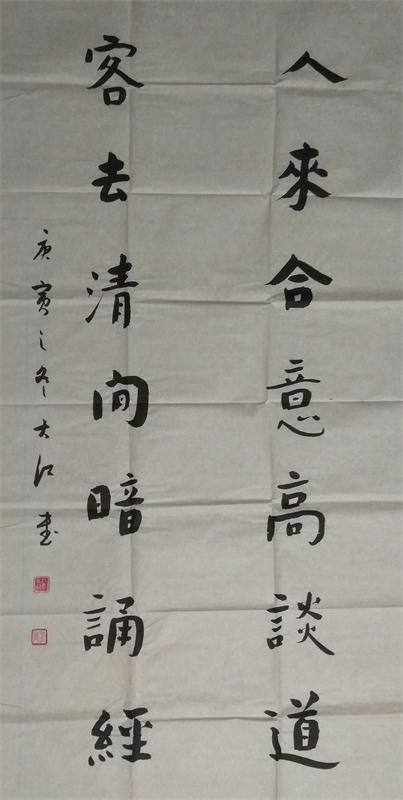 人來合意高談道
客去清间暗誦經
庚寅之冬大江書